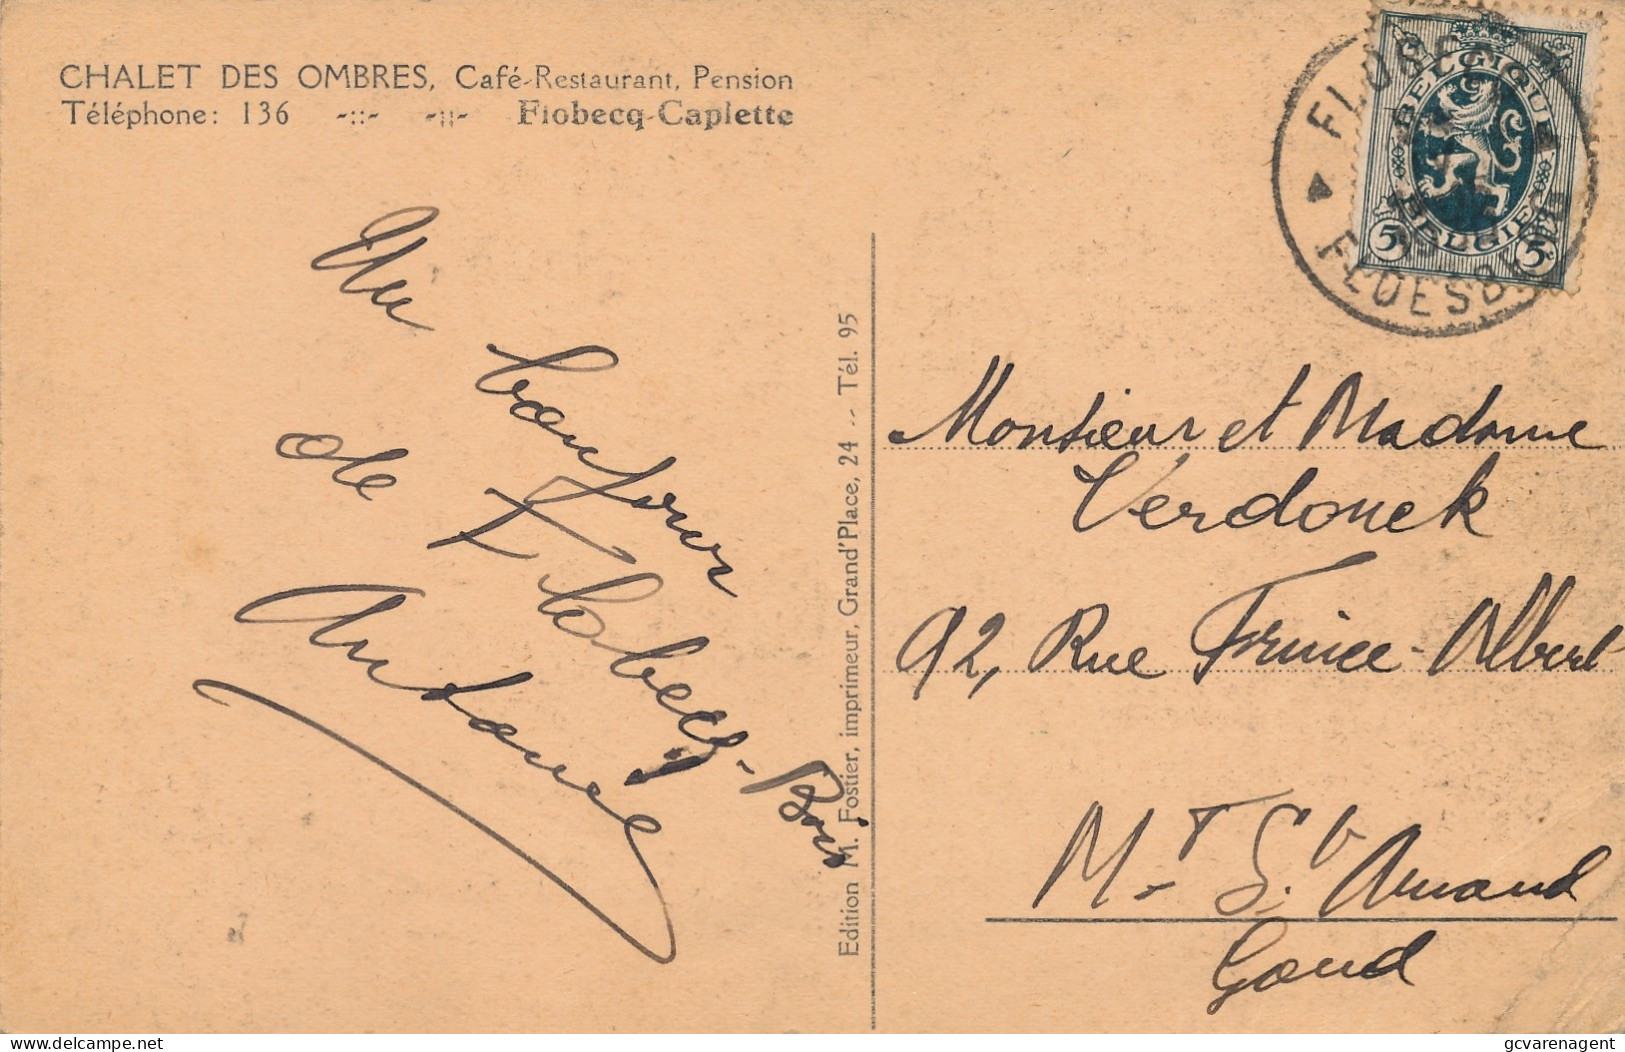 CHALET DES OMBRES, Café-Restaurant, Pension
Téléphone: 136 -::- -::- Flobecq-Caplette
Un
bonjour
de Flobecq-Bois
Antoine
Edition M. Fostier, imprimeur, Grand'Place, 24 -- Tél. 95
BELGIQUE
BELGIE
5 5
FLOBECQ
FLOESBERG
Monsieur et Madame
Verdonck
92, Rue Prince-Albert
Mt St Amand
Gand
delcampe.net
gcvarenagent